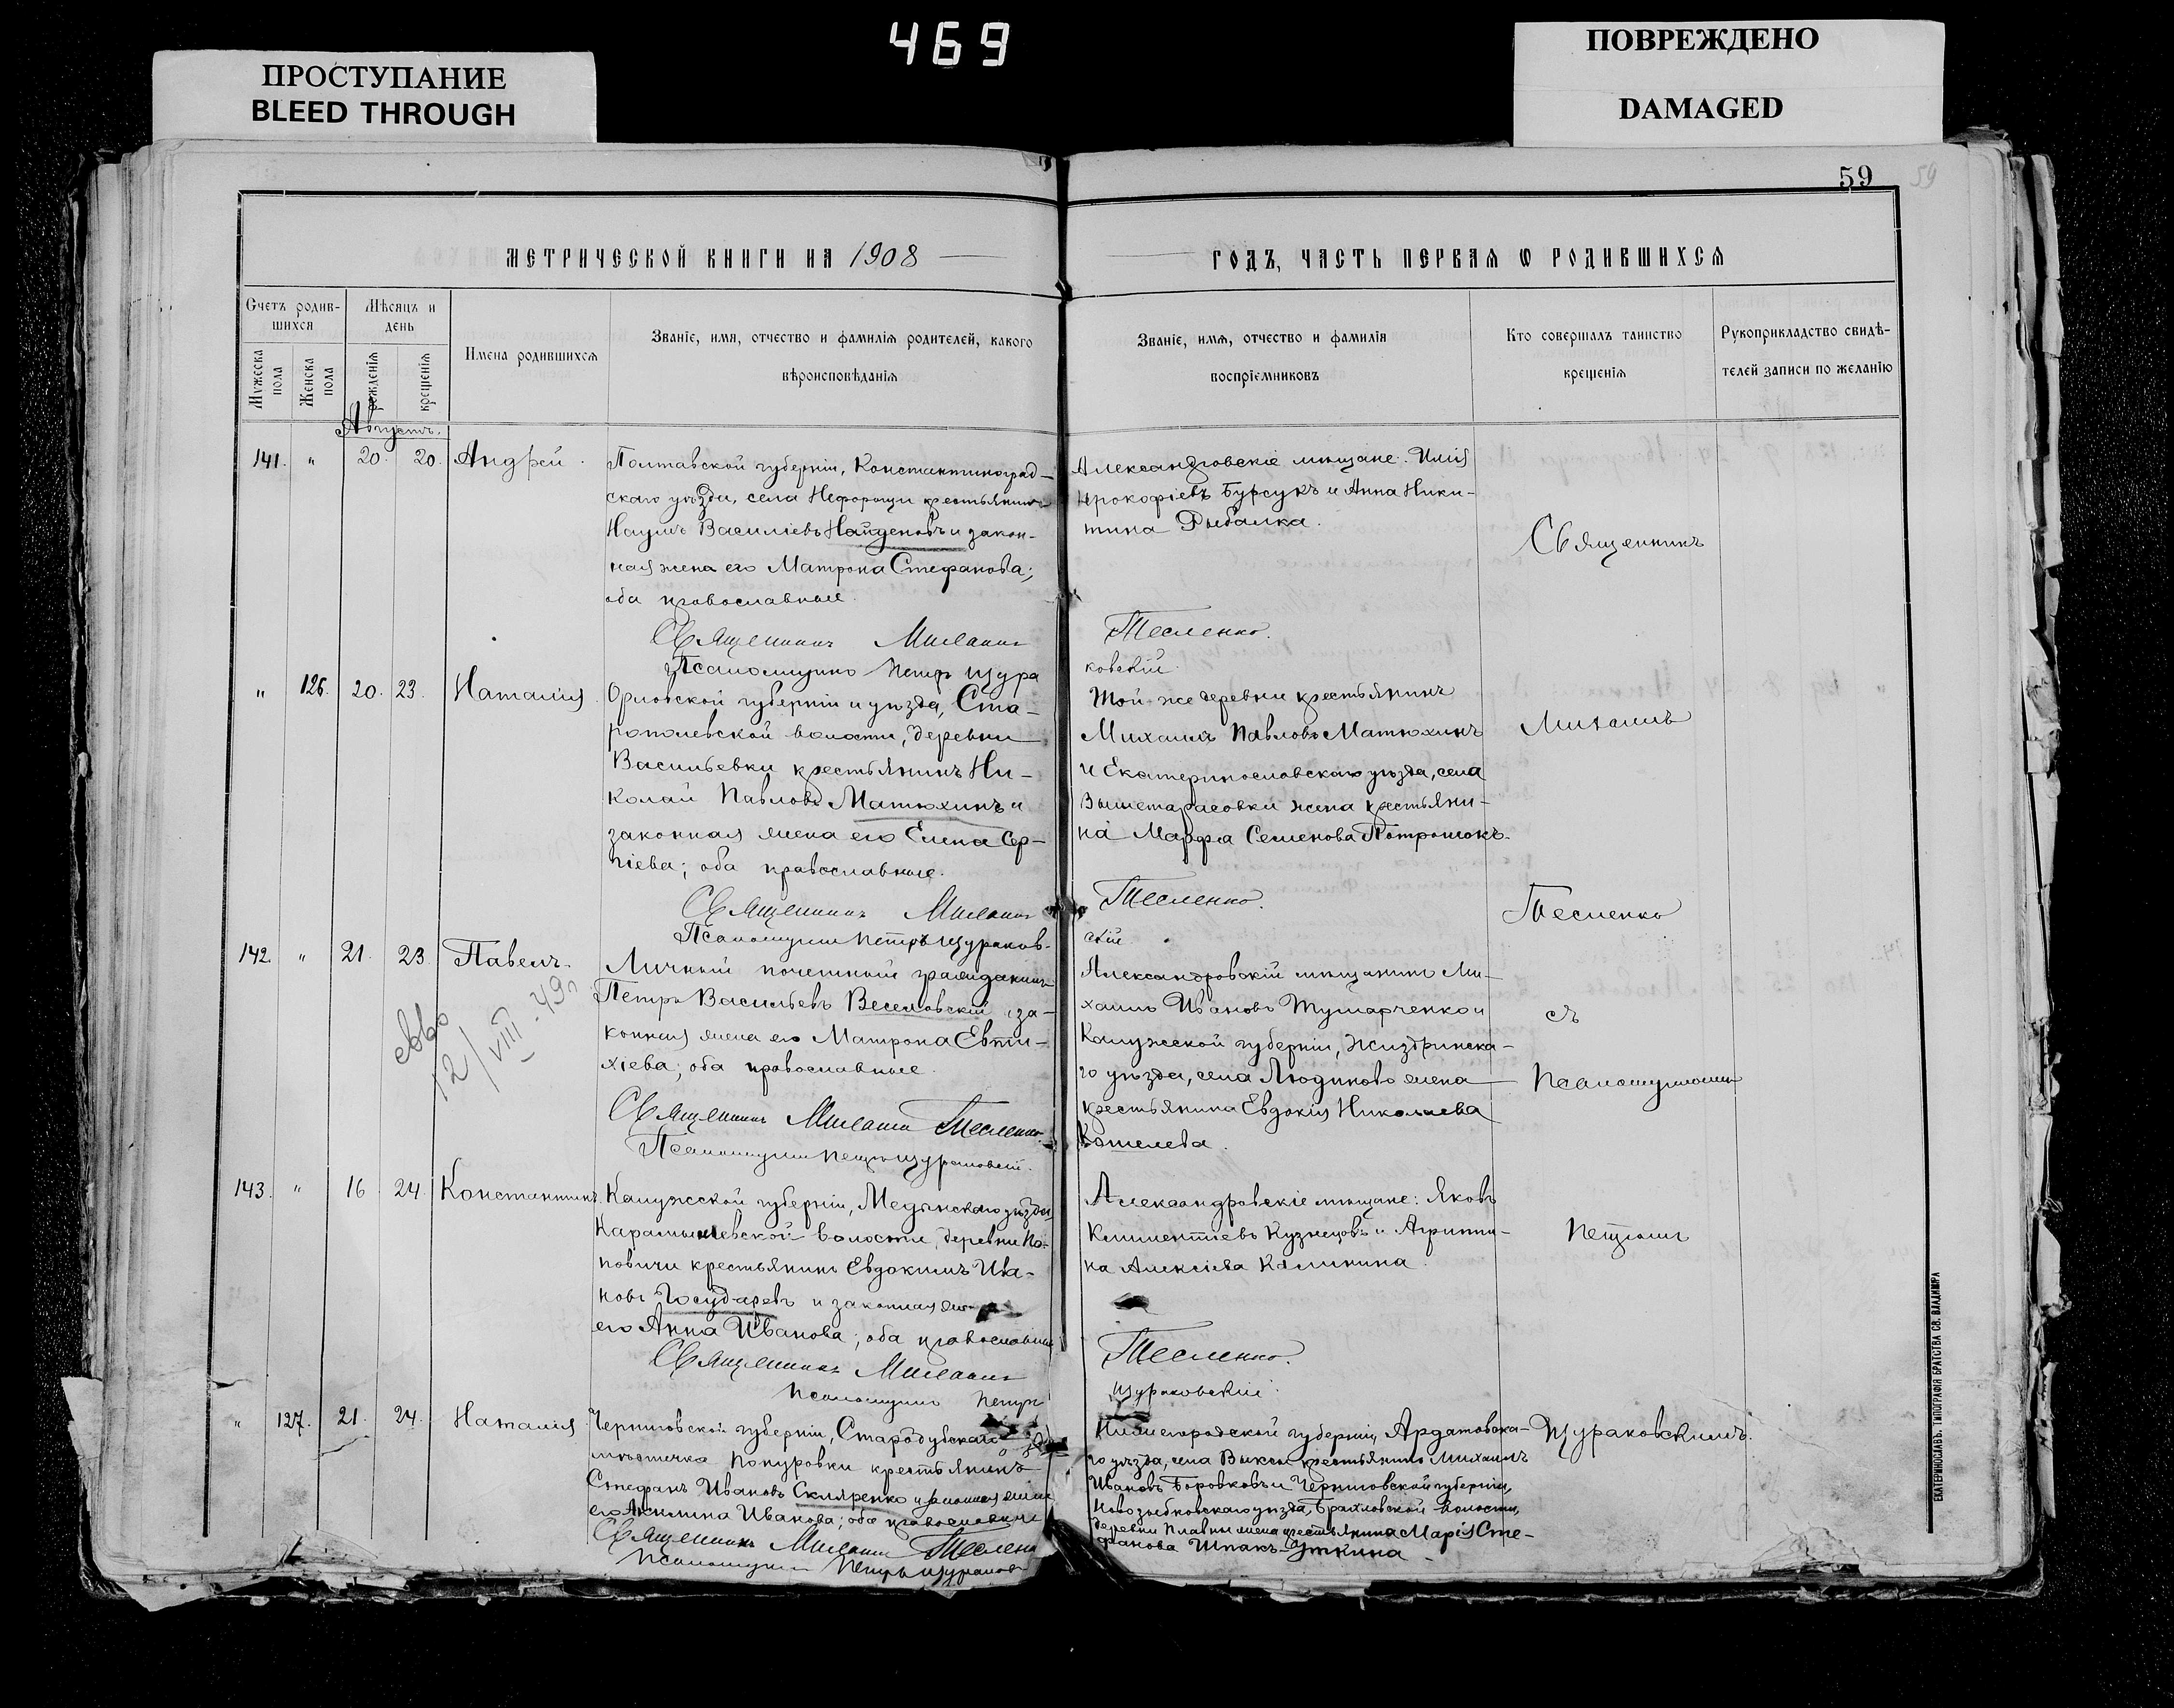 469
ПРОСТУПАНИЕ
BLEED THROUGH
ПОВРЕЖДЕНО
DAMAGED
59
59
МЕТРИЧЕСКОЙ КНИГИ НА 1908
ГОДЪ, ЧАСТЬ ПЕРВАЯ Ѡ РОДИВШИХСЯ
Счетъ родив-
шихся
Мѣсяцъ и
день
Мужеска
пола
Женска
пола
рожденія
крещенія
Имена родившихся
Званіе, имя, отчество и фамилія родителей, какого
вѣроисповѣданія
Званіе, имя, отчество и фамилія
воспріемниковъ
Кто совершалъ таинство
крещенія
Рукоприкладство свидѣ-
телей записи по желанію
Августъ.
141. " 20. 20. Андрей.
Полтавской губерніи, Константиноград-
скаго уѣзда, села Нефорощи крестьянинъ
Наумъ Василіевъ Найденовъ и закон-
ная жена его Матрона Стефанова;
оба православные.
Священникъ Михаилъ
Псаломщикъ Петръ Щура
Александровскіе мѣщане: Илія
Прокофіевъ Бурсукъ и Анна Ники-
тина Рыбалка.
Тесленко.
ковскій.
" 126. 20. 23. Наталія.
Орловской губерніи и уѣзда, Ста-
рополевской волости, деревни
Васильевки крестьянинъ Ни-
колай Павловъ Матюхинъ и
законная жена его Елена Сер-
гіева; оба православные.
Священникъ Михаилъ
Псаломщикъ Петръ Щураков-
Той-же деревни крестьянинъ
Михаилъ Павловъ Матюхинъ
и Екатеринославскаго уѣзда, села
Вышетарасовки жена крестьяни-
на Марфа Семенова
Тесленко.
скій
142. " 21. 23. Павелъ.
12/VIII-49г
Личный почетный гражданинъ
Петръ Васильевъ Веселовскій и за-
конная жена его Матрона Евти-
хіева; оба православные.
Священникъ Михаилъ Тесленко.
Псаломщикъ Петръ Щураковскій.
Александровскій мѣщанинъ Ми-
хаилъ Ивановъ и
Калужской губерніи, Жиздринска-
го уѣзда, села Людиново жена
крестьянина Евдокія Николаева
143. " 16 24. Константинъ.
Калужской губерніи, Медынскаго уѣзда,
Карамышевской волости, деревни По-
повичи крестьянинъ Евдокимъ Ива-
новъ Государевъ и законная
его Анна Иванова; оба православные
Священникъ Михаилъ
Псаломщикъ Петръ
Александровскіе мѣщане: Яковъ
Климентіевъ Кузнецовъ и Агриппи-
на Алексіева Калинина.
Тесленко.
Щураковскій.
" 127. 21. 24. Наталія
Черниговской губерніи, Стародубскаго
мѣстечка Понуровки крестьянинъ
Стефанъ Ивановъ Скляренко и законная жена
его Акилина Иванова; оба православные
Священникъ Михаилъ Тесленко
Псаломщикъ Петръ Щураков
Нижегородской губерніи, Ардатовска-
го уѣзда, села Выксы крестьянинъ Михаилъ
Ивановъ Боровковъ и Черниговской губерніи,
Новозыбковскаго уѣзда, волости,
деревни жена крестьянина Марія Сте-
фанова Шпакъ-Уткина
Священникъ
Михаилъ
Тесленко
съ
Псаломщикомъ
Петромъ
Щураковскимъ.
ЕКАТЕРИНОСЛАВЪ. ТИПОГРАФІЯ БРАТСТВА СВ. ВЛАДИМІРА